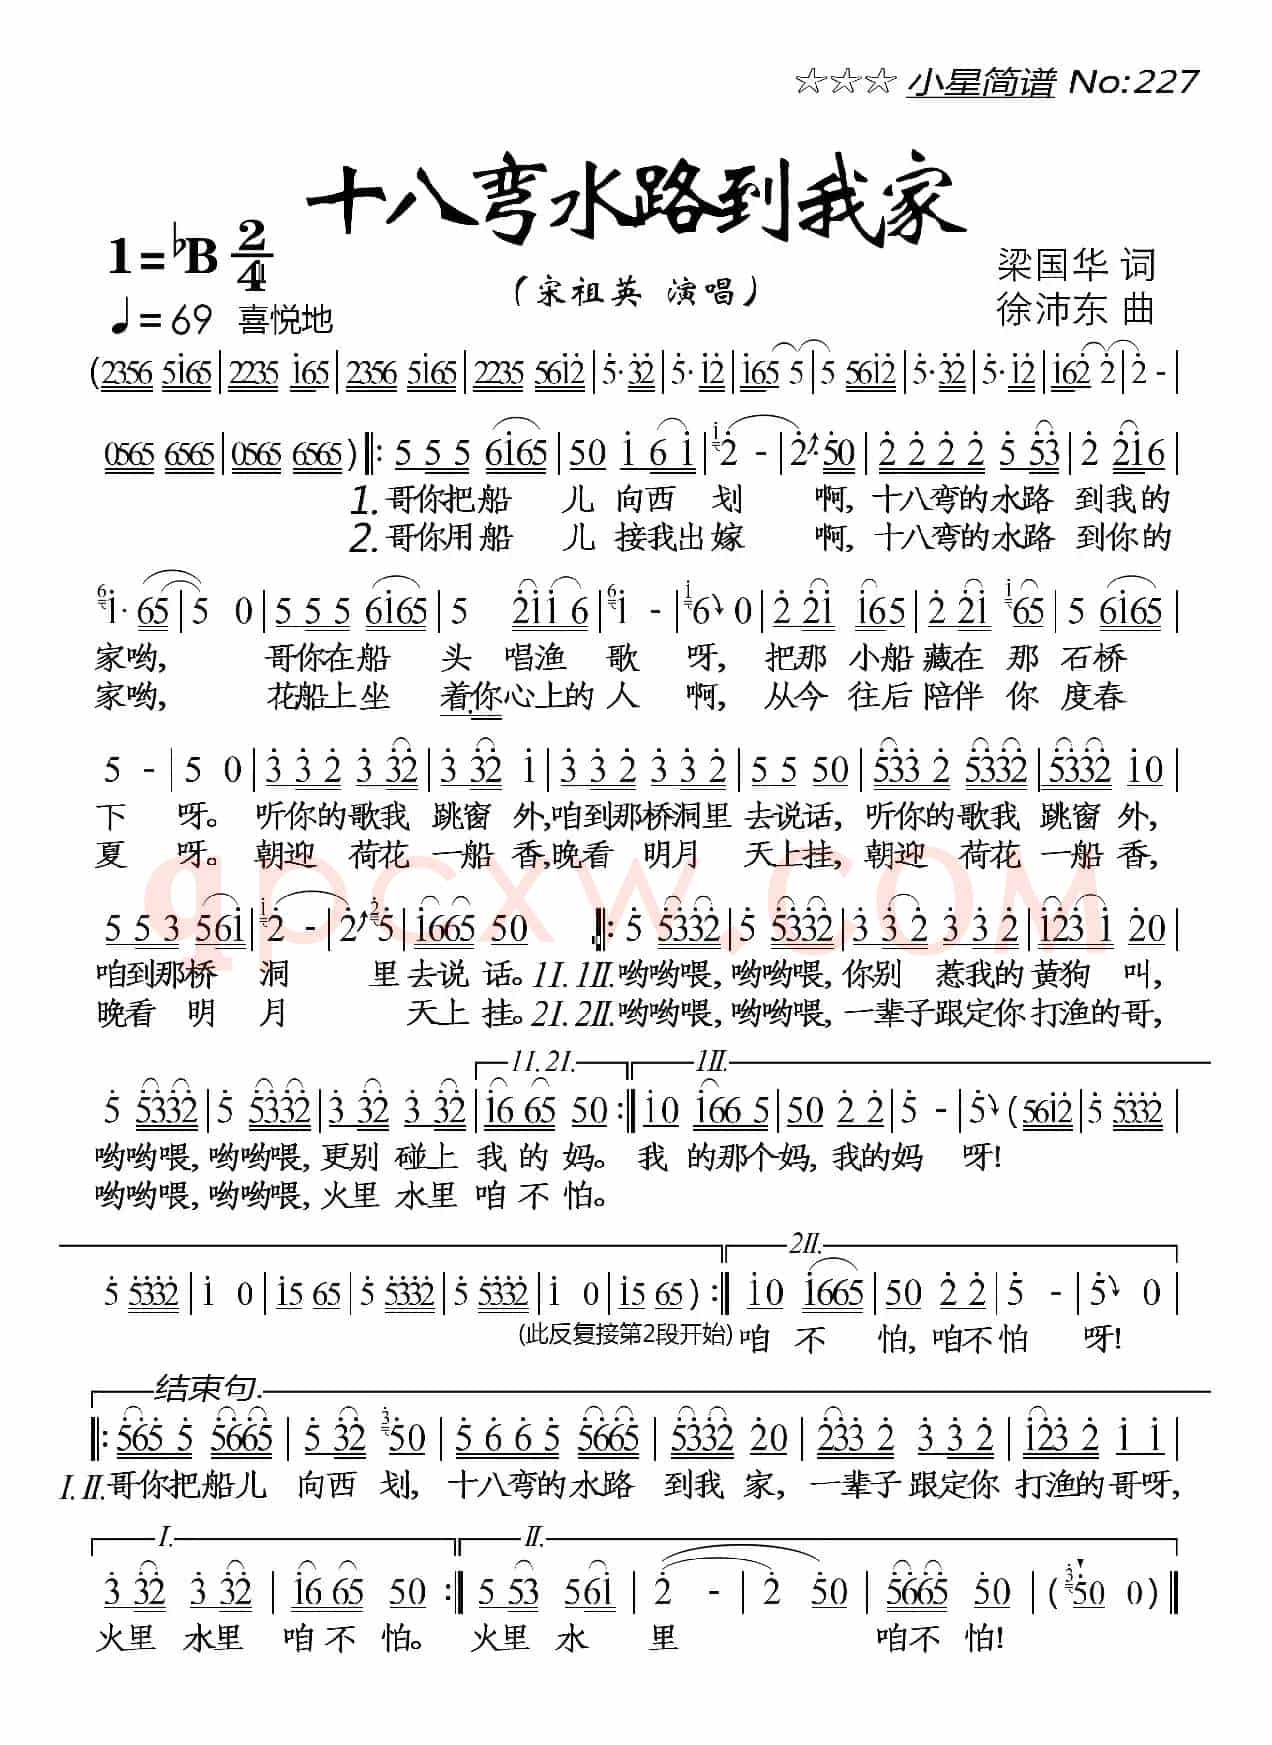 ☆☆☆ 小星简谱 No:227
十八弯水路到我家
1=♭B 2/4
(宋祖英 演唱)
梁国华 词
徐沛东 曲
♩=69 喜悦地
(2356 5i65|2235 i65|2356 5i65|2235 56i2|5·32|5·i2|i65 5|5 56i2|5·32|5·i2|i62 2|2 -|
0565 6565|0565 6565)|:5 5 5 6i65|50 i 6 i|2 -|2·50|2 2 2 2 5 53|2 2i6|
1.哥你把船 儿 向西 划 啊, 十八弯的水路 到我的
2.哥你用船 儿 接我出嫁 啊, 十八弯的水路 到你的
i·65|5 0|5 5 5 6i65|5 2ii 6|i -|6 0|2 2i i65|2 2i 65|5 6i65|
家哟, 哥你在船 头 唱渔 歌 呀, 把那 小船藏在 那 石桥
家哟, 花船上坐 着你心上的 人 啊, 从今 往后陪伴 你 度春
5 -|5 0|3 3 2 3 32|3 32 i|3 3 2 3 32|5 5 50|533 2 5332|5332 i0|
下 呀。 听你的歌我 跳窗 外,咱到那桥洞里 去说话, 听你的歌我 跳窗 外,
夏 呀。 朝迎 荷花 一船 香,晚看 明月 天上挂, 朝迎 荷花 一船 香,
qpcxw.COM
5 5 3 56i|2 -|2 5|i665 50|:5 5332|5 5332|3 3 2 3 3 2|i23 i 20|
咱到那桥 洞 里去说 话。1I. 1II.哟哟喂, 哟哟喂, 你别 惹我的 黄狗 叫,
晚看 明 月 天上 挂。2I. 2II.哟哟喂, 哟哟喂, 一辈子跟定你 打渔的哥,
1I. 2I. 1II.
5 5332|5 5332|3 32 3 32|i6 65 50:|i0 i66 5|50 2 2|5 -|5 (56i2|5 5332|
哟哟喂, 哟哟喂, 更别 碰上 我 的 妈。 我 的那个妈, 我的妈 呀!
哟哟喂, 哟哟喂, 火里 水里 咱 不 怕。
2II.
5 5332|i 0|i5 65|5 5332|5 5332|i 0|i5 65):|i0 i665|50 2 2|5 -|5 0|
(此反复接第2段开始) 咱 不 怕, 咱不怕 呀!
结束句.
|:565 5 5665|5 32 50|5 6 6 5 5665|5332 20|233 2 3 3 2|i23 2 i i|
I. II.哥你把船儿 向西 划, 十八弯的水路 到我 家, 一辈子 跟定你 打渔的哥呀,
I. II.
3 32 3 32|i6 65 50:|5 53 56i|2 -|2 50|5665 50|(50 0)|
火里 水里 咱 不 怕。 火里 水 里 咱不 怕!